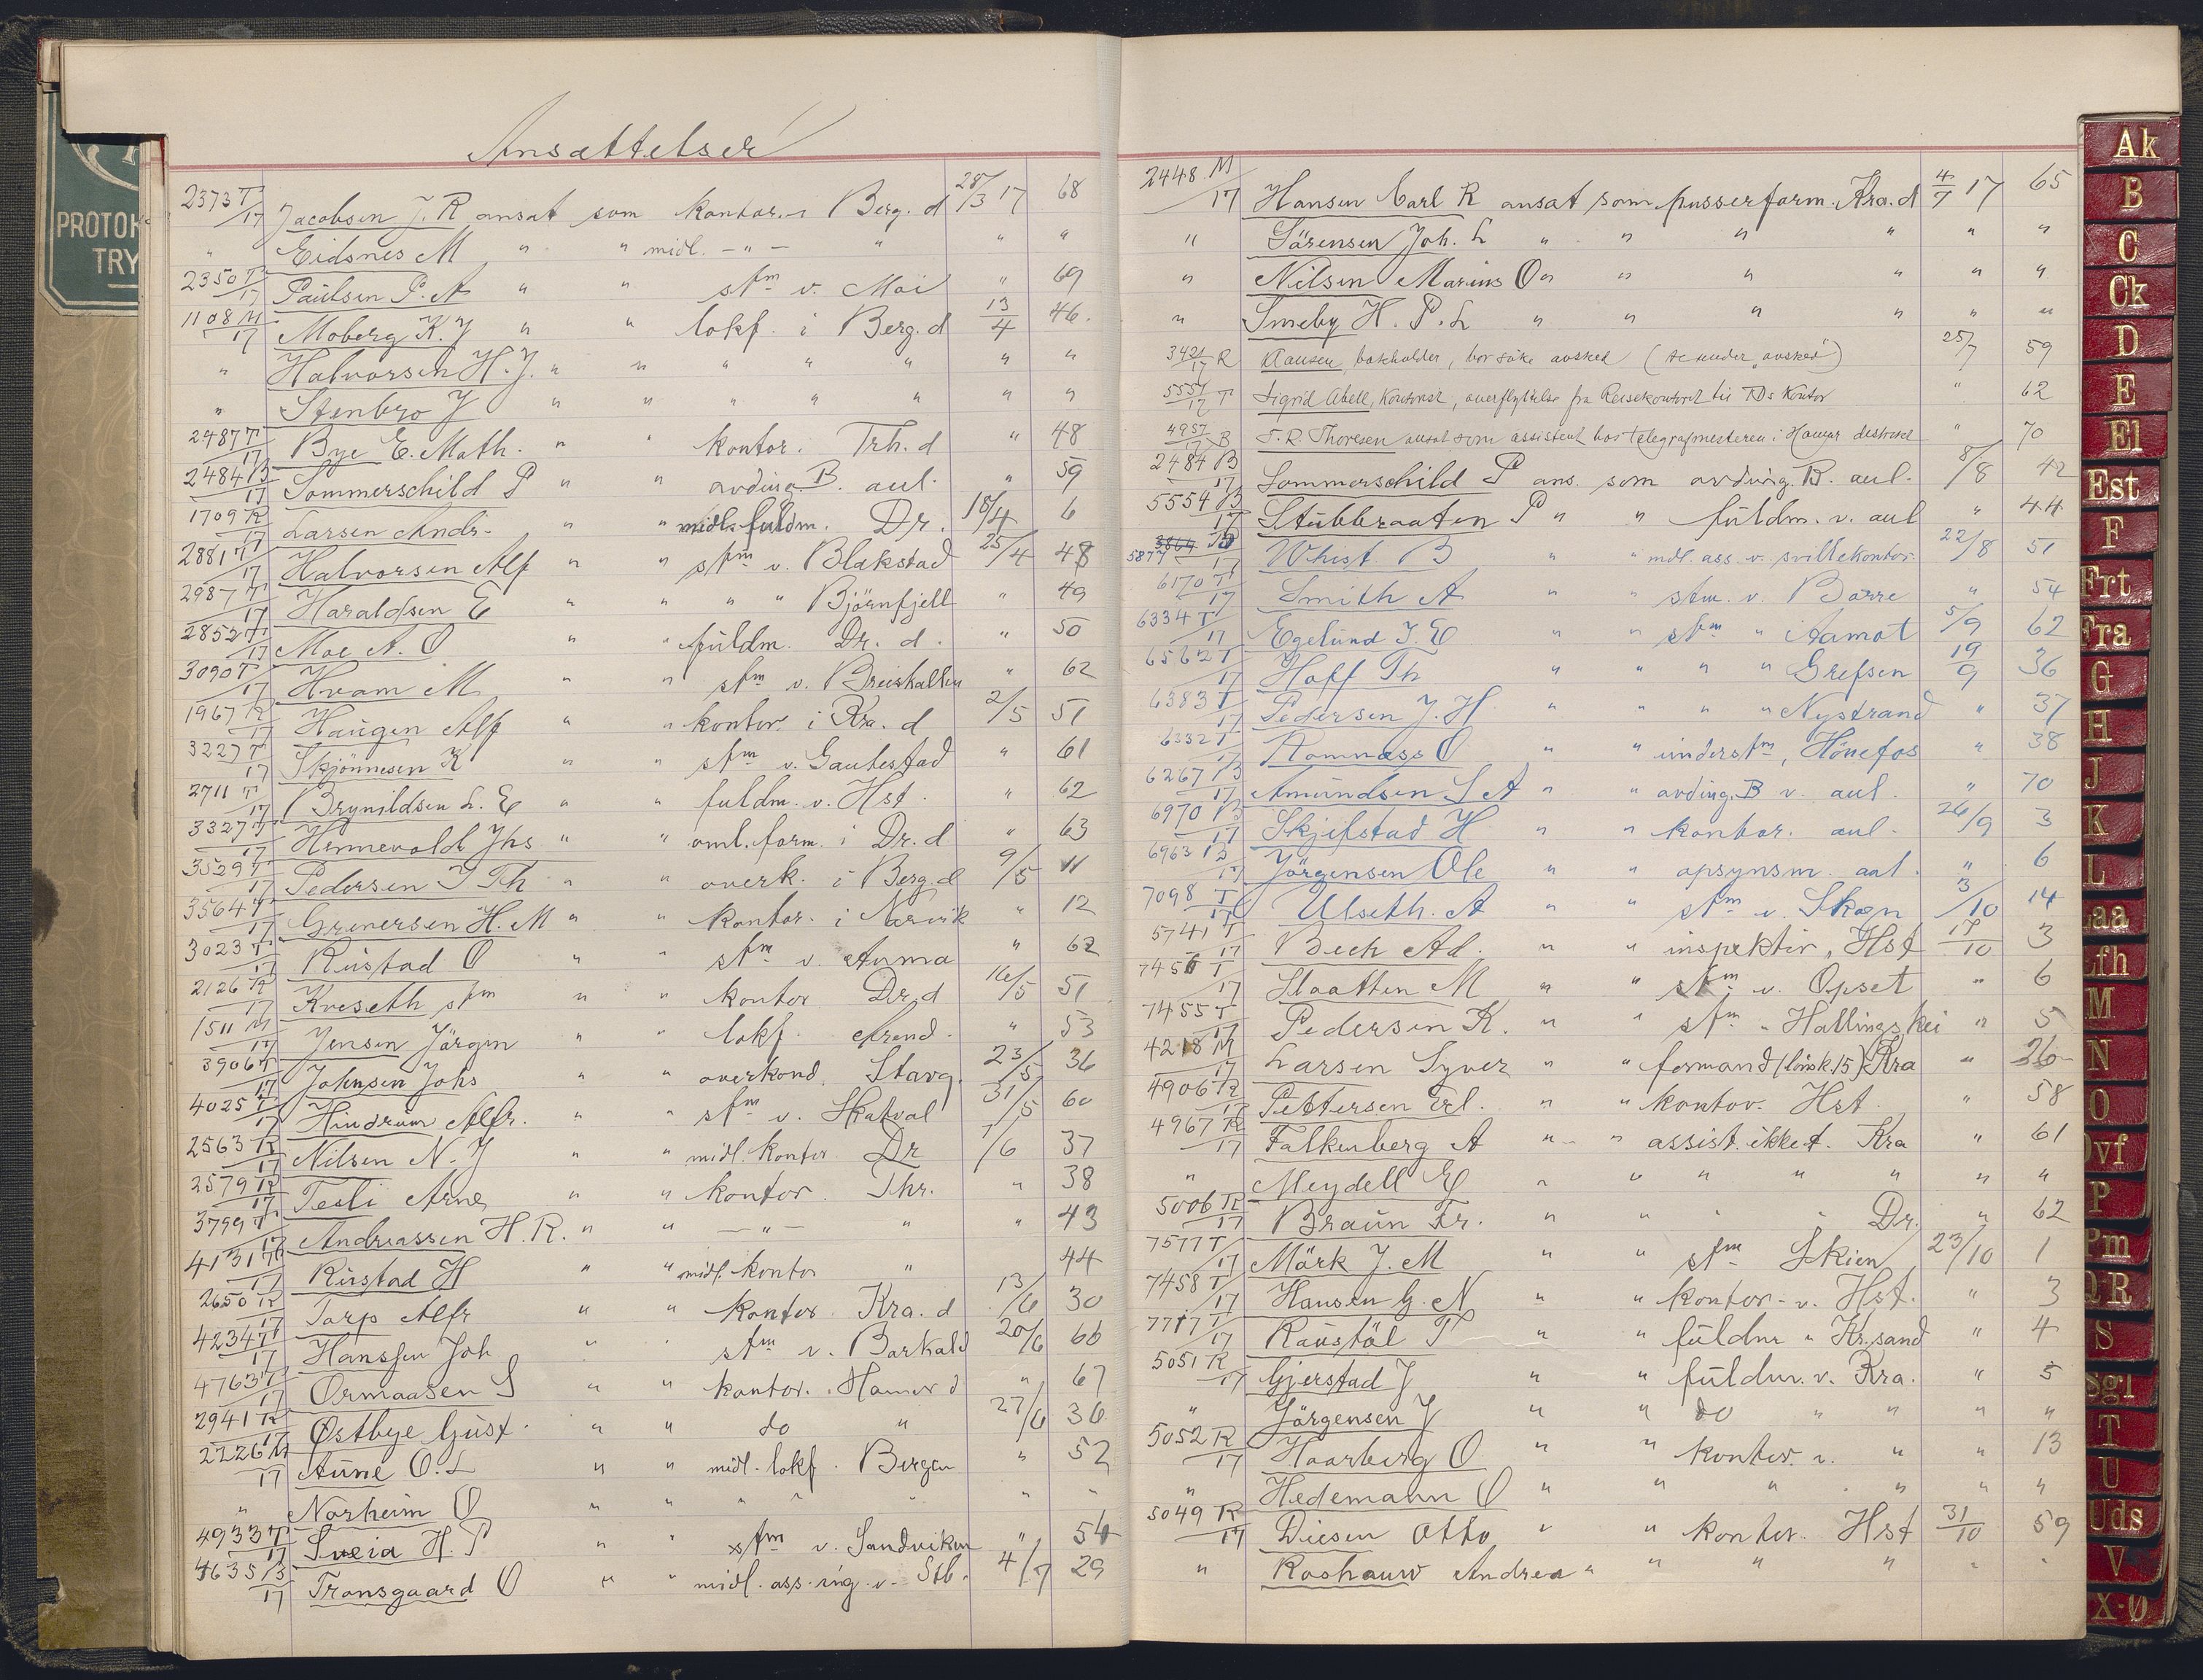 Ansættelser
2373 T/17 Jacobsen J. R ansat som kontor. i Berg. d 28/3 17 68
" Eidsnes M " " midl. -"- " " "
2350 T/17 Paulsen P. A " " stm v. Moi " 69
1108 M/17 Moberg K. J " " lokf. i Berg. d 13/4 46.
" Halvorsen H. J. " " " " " " "
" Stenbro J " " " " " " "
2487 T/17 Bye E. Math. " " kontor. Trh. d " 48
2484 B/17 Sommerschild P " " avding. B. aul. " 59
1709 R/17 Larsen Andr. " " midl. fuldm. Dr. 18/4 6
2881 T/17 Halvorsen Alf " " stm v. Blakstad 25/4 48
2987 T/17 Haraldsen E " " " " Björnfjell " 49
2852 T/17 Moe A. O " " fuldm. Dr. d. " 50
3090 T/17 Hvam M " " stm v. Breiskallen " 62
1967 R/17 Haugen Alf " " kontor. i Kra. d 2/5 51
3227 T/17 Skjönnesen K " " stm v. Gautestad " 61
2711 T/17 Brynildsen L. E " " fuldm. v. Hst. " 62
3327 T/17 Hennevold Jhs " " oml. form. i Dr. d " 63
3529 T/17 Pedersen J Th " " overk. i Berg. d 9/5 11
3564 T/17 Grenersen H. M " " kontor. i Narvik " 12
3023 T/17 Rustad O " " stm v. Anma " 62
2126 R/17 Kveseth stm " " kontor Dr. d 16/5 51
1511 M/17 Jensen Jörgen " " lokf. Arend. " 53
3906 T/17 Johnsen Johs " " overkond. Stavg. 23/5 36
4025 T/17 Hindrum Alfr. " " stm v. Skatval 31/5 60
2563 R/17 Nilsen N. J " " midl. kontor. Dr 7/6 37
2579 R/17 Tesli Arne " " kontor. Thr. " 38
3799 T/17 Andreassen H. R. " " -"- " " 43
4131 T/17 Rustad H " " midl. kontor " 44
2650 R/17 Tarp Alfr " " kontor. Kra. d 13/6 30
4234 T/17 Hanssen Joh " " stm v. Barkald 20/6 66
4763 T/17 Ormaasen S " " kontor. Hamar d " 67
2941 R/17 Østbye Gust. " " do " 27/6 36
2226 M/17 Aune O. L " " midl. lokf. Bergen " 52
" Norheim O " " " " " " "
4933 T/17 Sveia H. P " " stm v. Sandviken " 54
4635 B/17 Tronsgaard O " " midl. ass. ing. v. Stb. 4/7 29
2448 M/17 Hansen Carl R ansat som pusserform. Kra. d 4/7 17 65
" Sörensen Joh. L " " " " " "
" Nilsen Marius O " " " " " "
" Smeby H. P. L " " " " " "
3421/17 R Klausen, bokholder, bor söke avsked (se under "avsked") 25/7 59
5551/17 T Sigrid Abell, Kontorist, overflyttelse fra Reisekontoret til TDs Kontor " 62
4957/17 B T. R. Thoresen ansat som assistent hos telegrafmesteren i Hamar distrikt " 70
2484 B/17 Sommerschild P ans. som avding. B. aul. 8/8 42
5554 B/17 Stubbraaten P " " fuldm. v. aul " 44
5877/17 Whist B " " midl. ass. v. svillekontor. 22/8 51
6170 T/17 Smith A " " stm. v. Borre " 54
6334 T/17 Egelund J. E " " stm " Aamot 5/9 62
6562 T/17 Hoff Th " " " " Grefsen 19/9 36
6383 T/17 Pedersen J. H " " " " Nystrand " 37
6332 T/17 Romnæss O " " understm, Hönefos " 38
6267 B/17 Amundsen S A " " avding. B v. aul. " 70
6970 B/17 Skjefstad H " " kontor. aul. 26/9 3
6963 B/17 Jörgensen Ole " " opsynsm. aul. " 6
7098 T/17 Ulseth. A " " stm v. Skogn 3/10 14
5741 T/17 Bech Ad. " " inspektör, Hst 17/10 3
7456 T/17 Slaatten M " " stm v. Opset " 6
7455 T/17 Pedersen K. " " stm " Hallingskei " 5
4218 M/17 Larsen Syver " " formand (lönsk. 15) Kra " 26
4906 R/17 Pettersen Erl. " " kontor. Hst. " 58
4967 R/17 Falkenberg A " " assist. ikke t. Kra " 61
" Meydell E " " " " " " "
5006 R/17 Braun Fr. " " " " Dr. " 62
7577 T/17 Mörk J. M " " stm Skien 23/10 1
7458 T/17 Hansen G. N " " kontor. v. Hst. " 3
7717 T/17 Raustöl T " " fuldm " Kr.sand " 4
5051 R/17 Gjerstad J " " fuldm. v. Kra. " 5
" Jörgensen J " " do " " " "
5052 R/17 Haarberg O " " kontor. v. " " 13
" Hedemann O " " " " " "
5049 R/17 Diesen Otto " " kontor. Hst 31/10 59
" Roshauw Andrea " " " " " "
PROTOK
TRY
Ak
B
C
Ck
D
E
El
Est
F
Frt
Fra
G
H
J
K
L
Laa
Lfh
M
N
O
Ovf
P
Pm
Q-R
S
Sgl
T
U
Uds
V
X-Ø